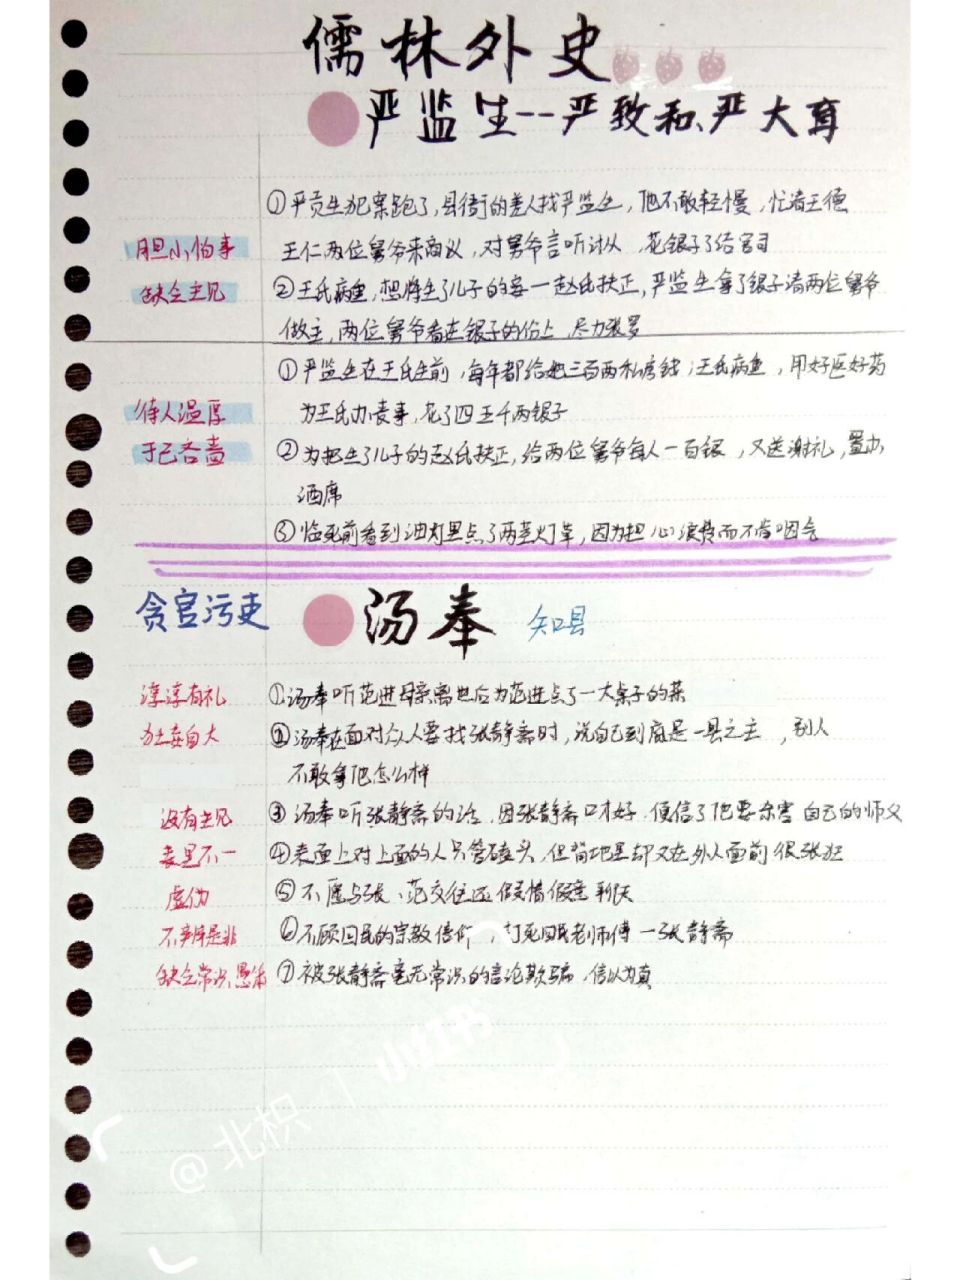 儒林外史
严监生--严致和、严大育
①严贡生犯案跑了,县衙的差人找严监生,他不敢轻慢,忙请王德
胆小怕事 王仁两位舅爷来商议,对舅爷言听计从 花银子了给官司
缺乏主见 ②王氏病重,想将生了儿子的妾一赵氏扶正,严监生拿了银子请两位舅爷
做主,两位舅爷看在银子的份上 尽力张罗
①严监生在王氏生前,每年都给她三百两私房钱;王氏病重,用好医好药
待人温厚 为王氏办丧事,花了四五千两银子
于己吝啬 ②为把生了儿子的赵氏扶正,给两位舅爷每人一百银,又送谢礼,置办
酒席
③临死前看到油灯里点了两茎灯草,因为担心浪费而不肯咽气
贪官污吏 汤奉 知县
淳淳有礼 ①汤奉听范进母亲离世后为范进点了一大桌子的菜
妄自大 ②汤奉在面对众人要找张静斋时,说自己到底是一县之主,别人
不敢拿他怎么样
没有主见 ③汤奉听张静斋的话,因张静斋口才好 便信了他要杀害自己的师父
表里不一 ④表面上对上面的人只管磕头,但背地里却又在外人面前很张狂
虚伪 ⑤不愿与张、范交往还假情假意聊天
不辨是非 ⑥不顾回民的宗教信仰,打死回民老师傅一张静斋
缺乏常识愚 ⑦被张静斋毫无常识的言论欺骗,信以为真
小红书
@北枳